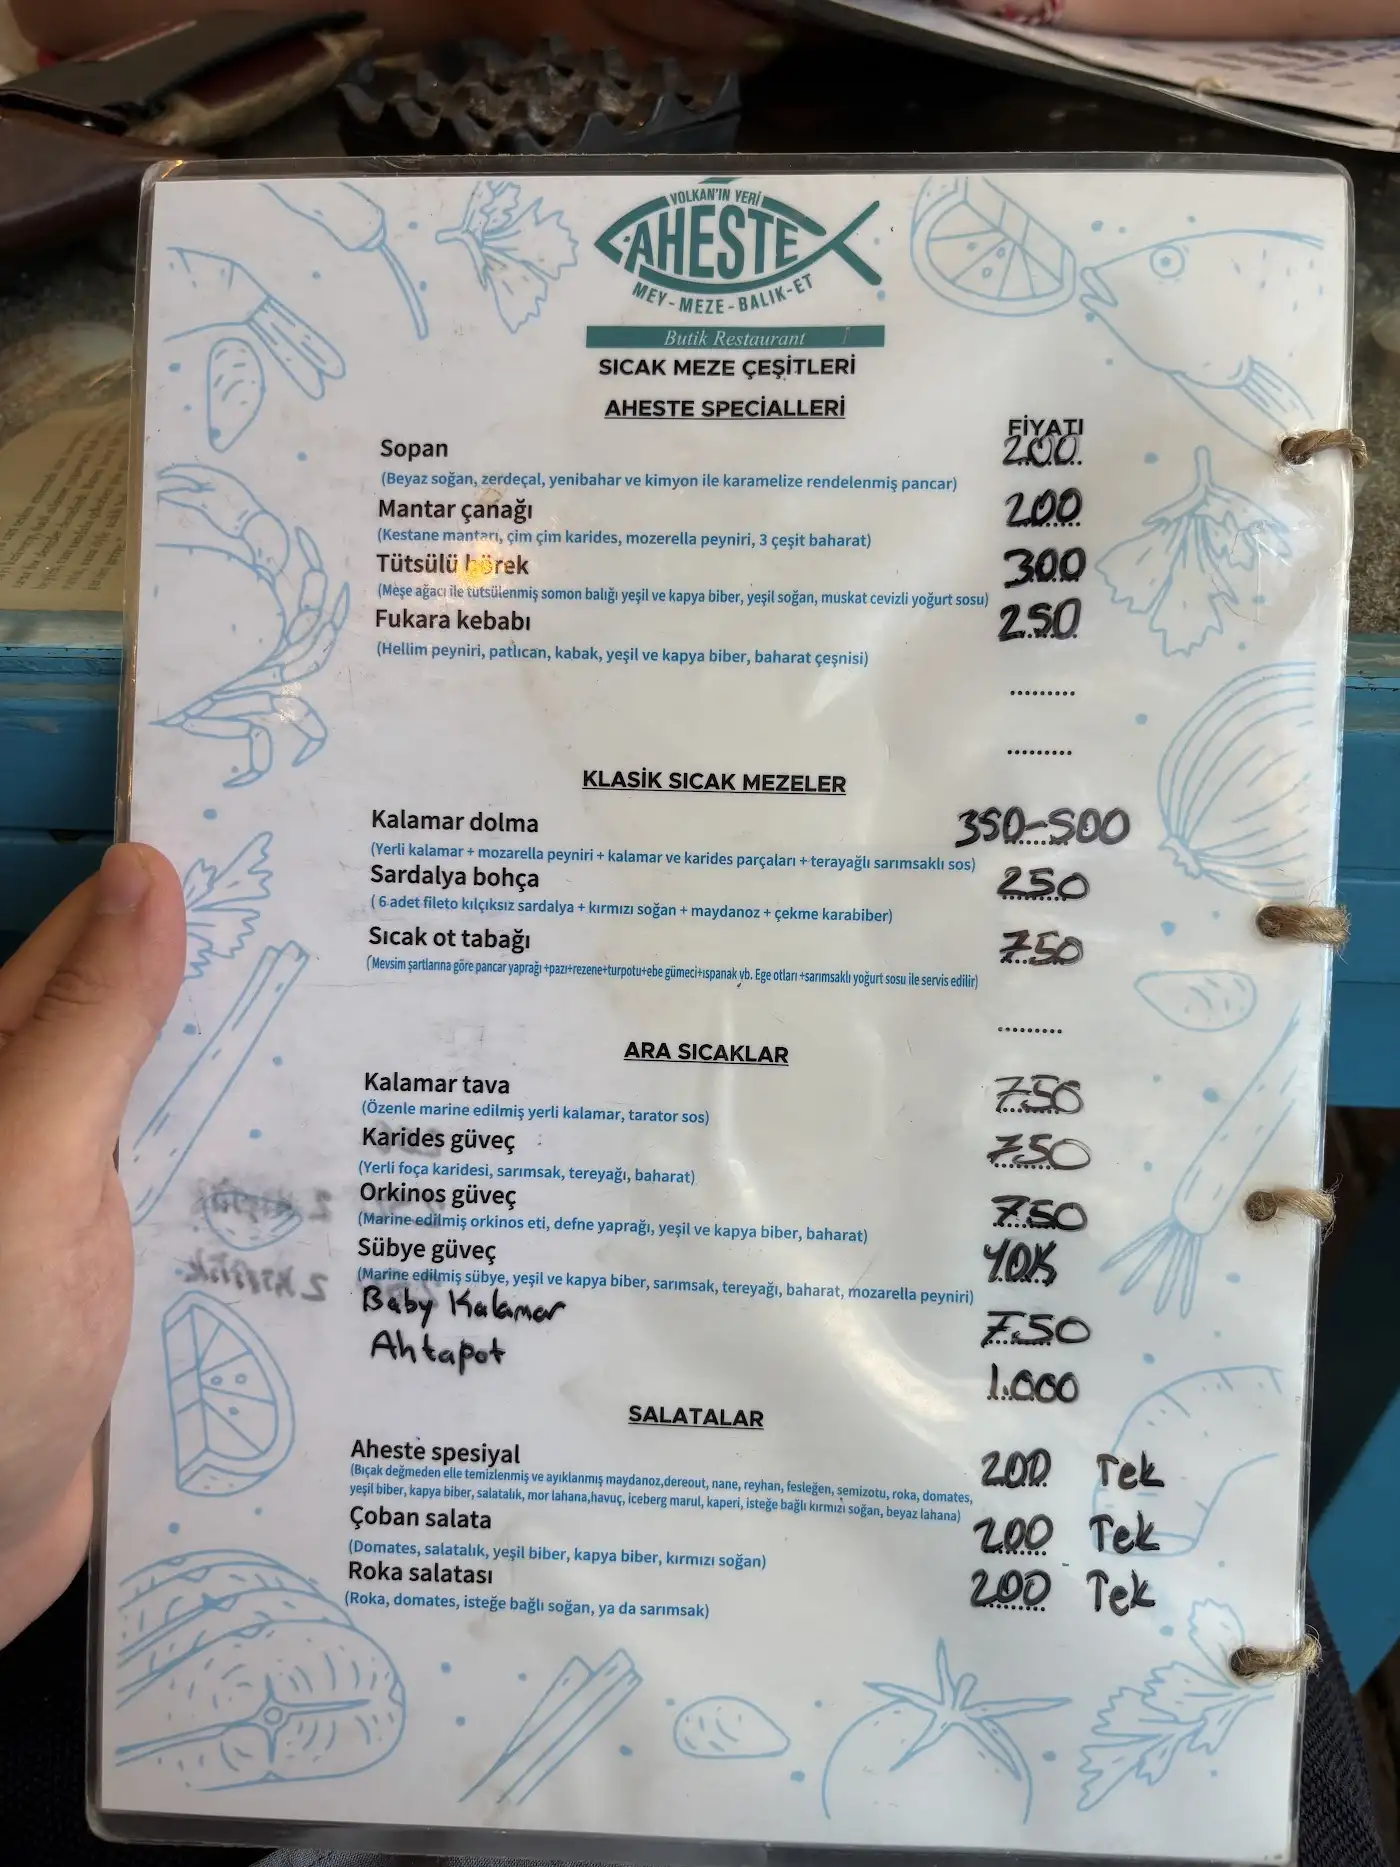 VOLKAN'IN YERİ
AHESTE
MEY-MEZE-BALIK-ET
Butik Restaurant
SICAK MEZE ÇEŞİTLERİ
AHESTE SPECİALLERİ
FİYATI
Sopan 200
(Beyaz soğan, zerdeçal, yenibahar ve kimyon ile karamelize rendelenmiş pancar)
Mantar çanağı 200
(Kestane mantarı, çim çim karides, mozerella peyniri, 3 çeşit baharat)
Tütsülü börek 300
(Meşe ağacı ile tütsülenmiş somon balığı yeşil ve kapya biber, yeşil soğan, muskat cevizli yoğurt sosu)
Fukara kebabı 250
(Hellim peyniri, patlıcan, kabak, yeşil ve kapya biber, baharat çeşnisi)
.........
.........
KLASİK SICAK MEZELER
Kalamar dolma 350-500
(Yerli kalamar + mozarella peyniri + kalamar ve karides parçaları + terayağlı sarımsaklı sos)
Sardalya bohça 250
( 6 adet fileto kılçıksız sardalya + kırmızı soğan + maydanoz + çekme karabiber)
Sıcak ot tabağı 750
(Mevsim şartlarına göre pancar yaprağı +pazı+rezene+turpotu+ebe gümeci+ıspanak vb. Ege otları +sarımsaklı yoğurt sosu ile servis edilir)
.........
ARA SICAKLAR
Kalamar tava 750
(Özenle marine edilmiş yerli kalamar, tarator sos)
Karides güveç 750
(Yerli foça karidesi, sarımsak, tereyağı, baharat)
Orkinos güveç 750
(Marine edilmiş orkinos eti, defne yaprağı, yeşil ve kapya biber, baharat)
Sübye güveç YOK
(Marine edilmiş sübye, yeşil ve kapya biber, sarımsak, tereyağı, baharat, mozarella peyniri)
Baby Kalamar 750
Ahtapot 1.000
SALATALAR
Aheste spesiyal 200 Tek
(Bıçak değmeden elle temizlenmiş ve ayıklanmış maydanoz,dereout, nane, reyhan, fesleğen, semizotu, roka, domates,
yeşil biber, kapya biber, salatalık, mor lahana,havuç, iceberg marul, kaperi, isteğe bağlı kırmızı soğan, beyaz lahana)
Çoban salata 200 Tek
(Domates, salatalık, yeşil biber, kapya biber, kırmızı soğan)
Roka salatası 200 Tek
(Roka, domates, isteğe bağlı soğan, ya da sarımsak)